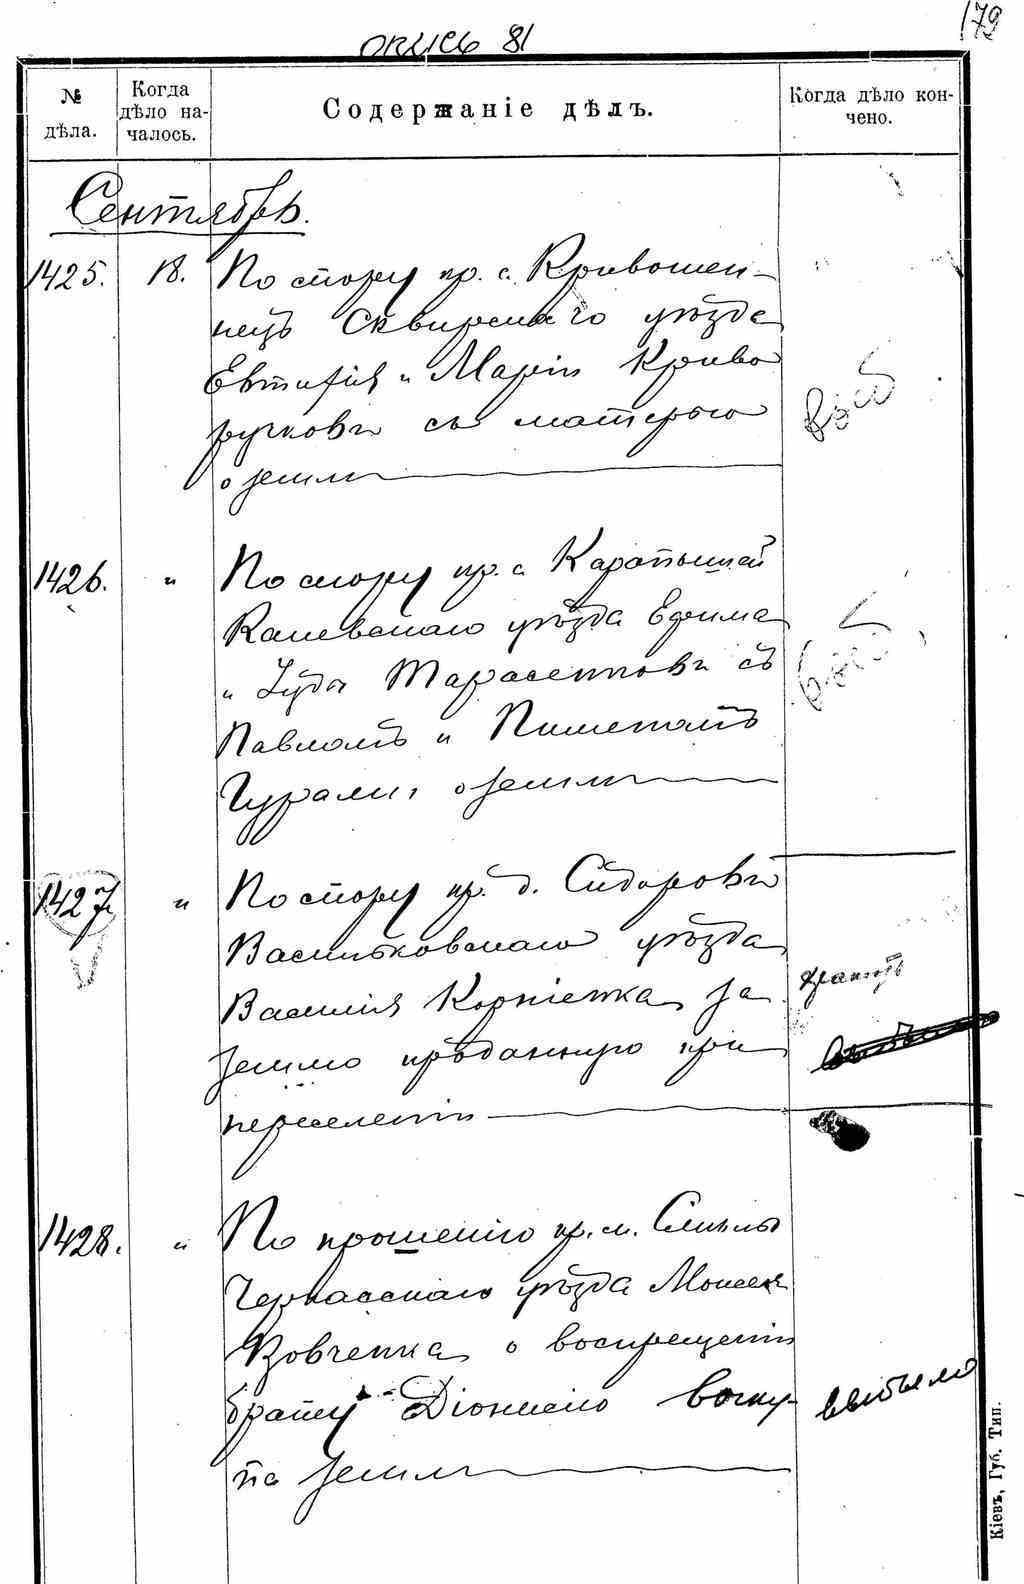 179
опись 81
№ дѣла.
Когда дѣло началось.
Содержаніе дѣлъ.
Когда дѣло кончено.
Сентябрь.
1425. 18. По спору кр. с. Кривошеи-
нецъ Сквирскаго уѣзда
Евтифія и Маріи Криво
ручковъ съ матерью
о земли
1426. " По спору кр. с. Карапышей
Каневскаго уѣзда Ефима
и Іуды Тарасенковъ съ
Павломъ и Пименомъ
Чурами о земли
1427. " По спору кр. д. Сидоровъ
Васильковскаго уѣзда
Василія Корніенка за
землю преданную при
переселеніи
хранить
1428. " По прошенію кр. м. Смѣлы
Черкасскаго уѣзда Моисея
Вовченка о воспрещеніи
брату Діонисію выку-
па земли
выбыло
Кіевъ, Губ. Тип.